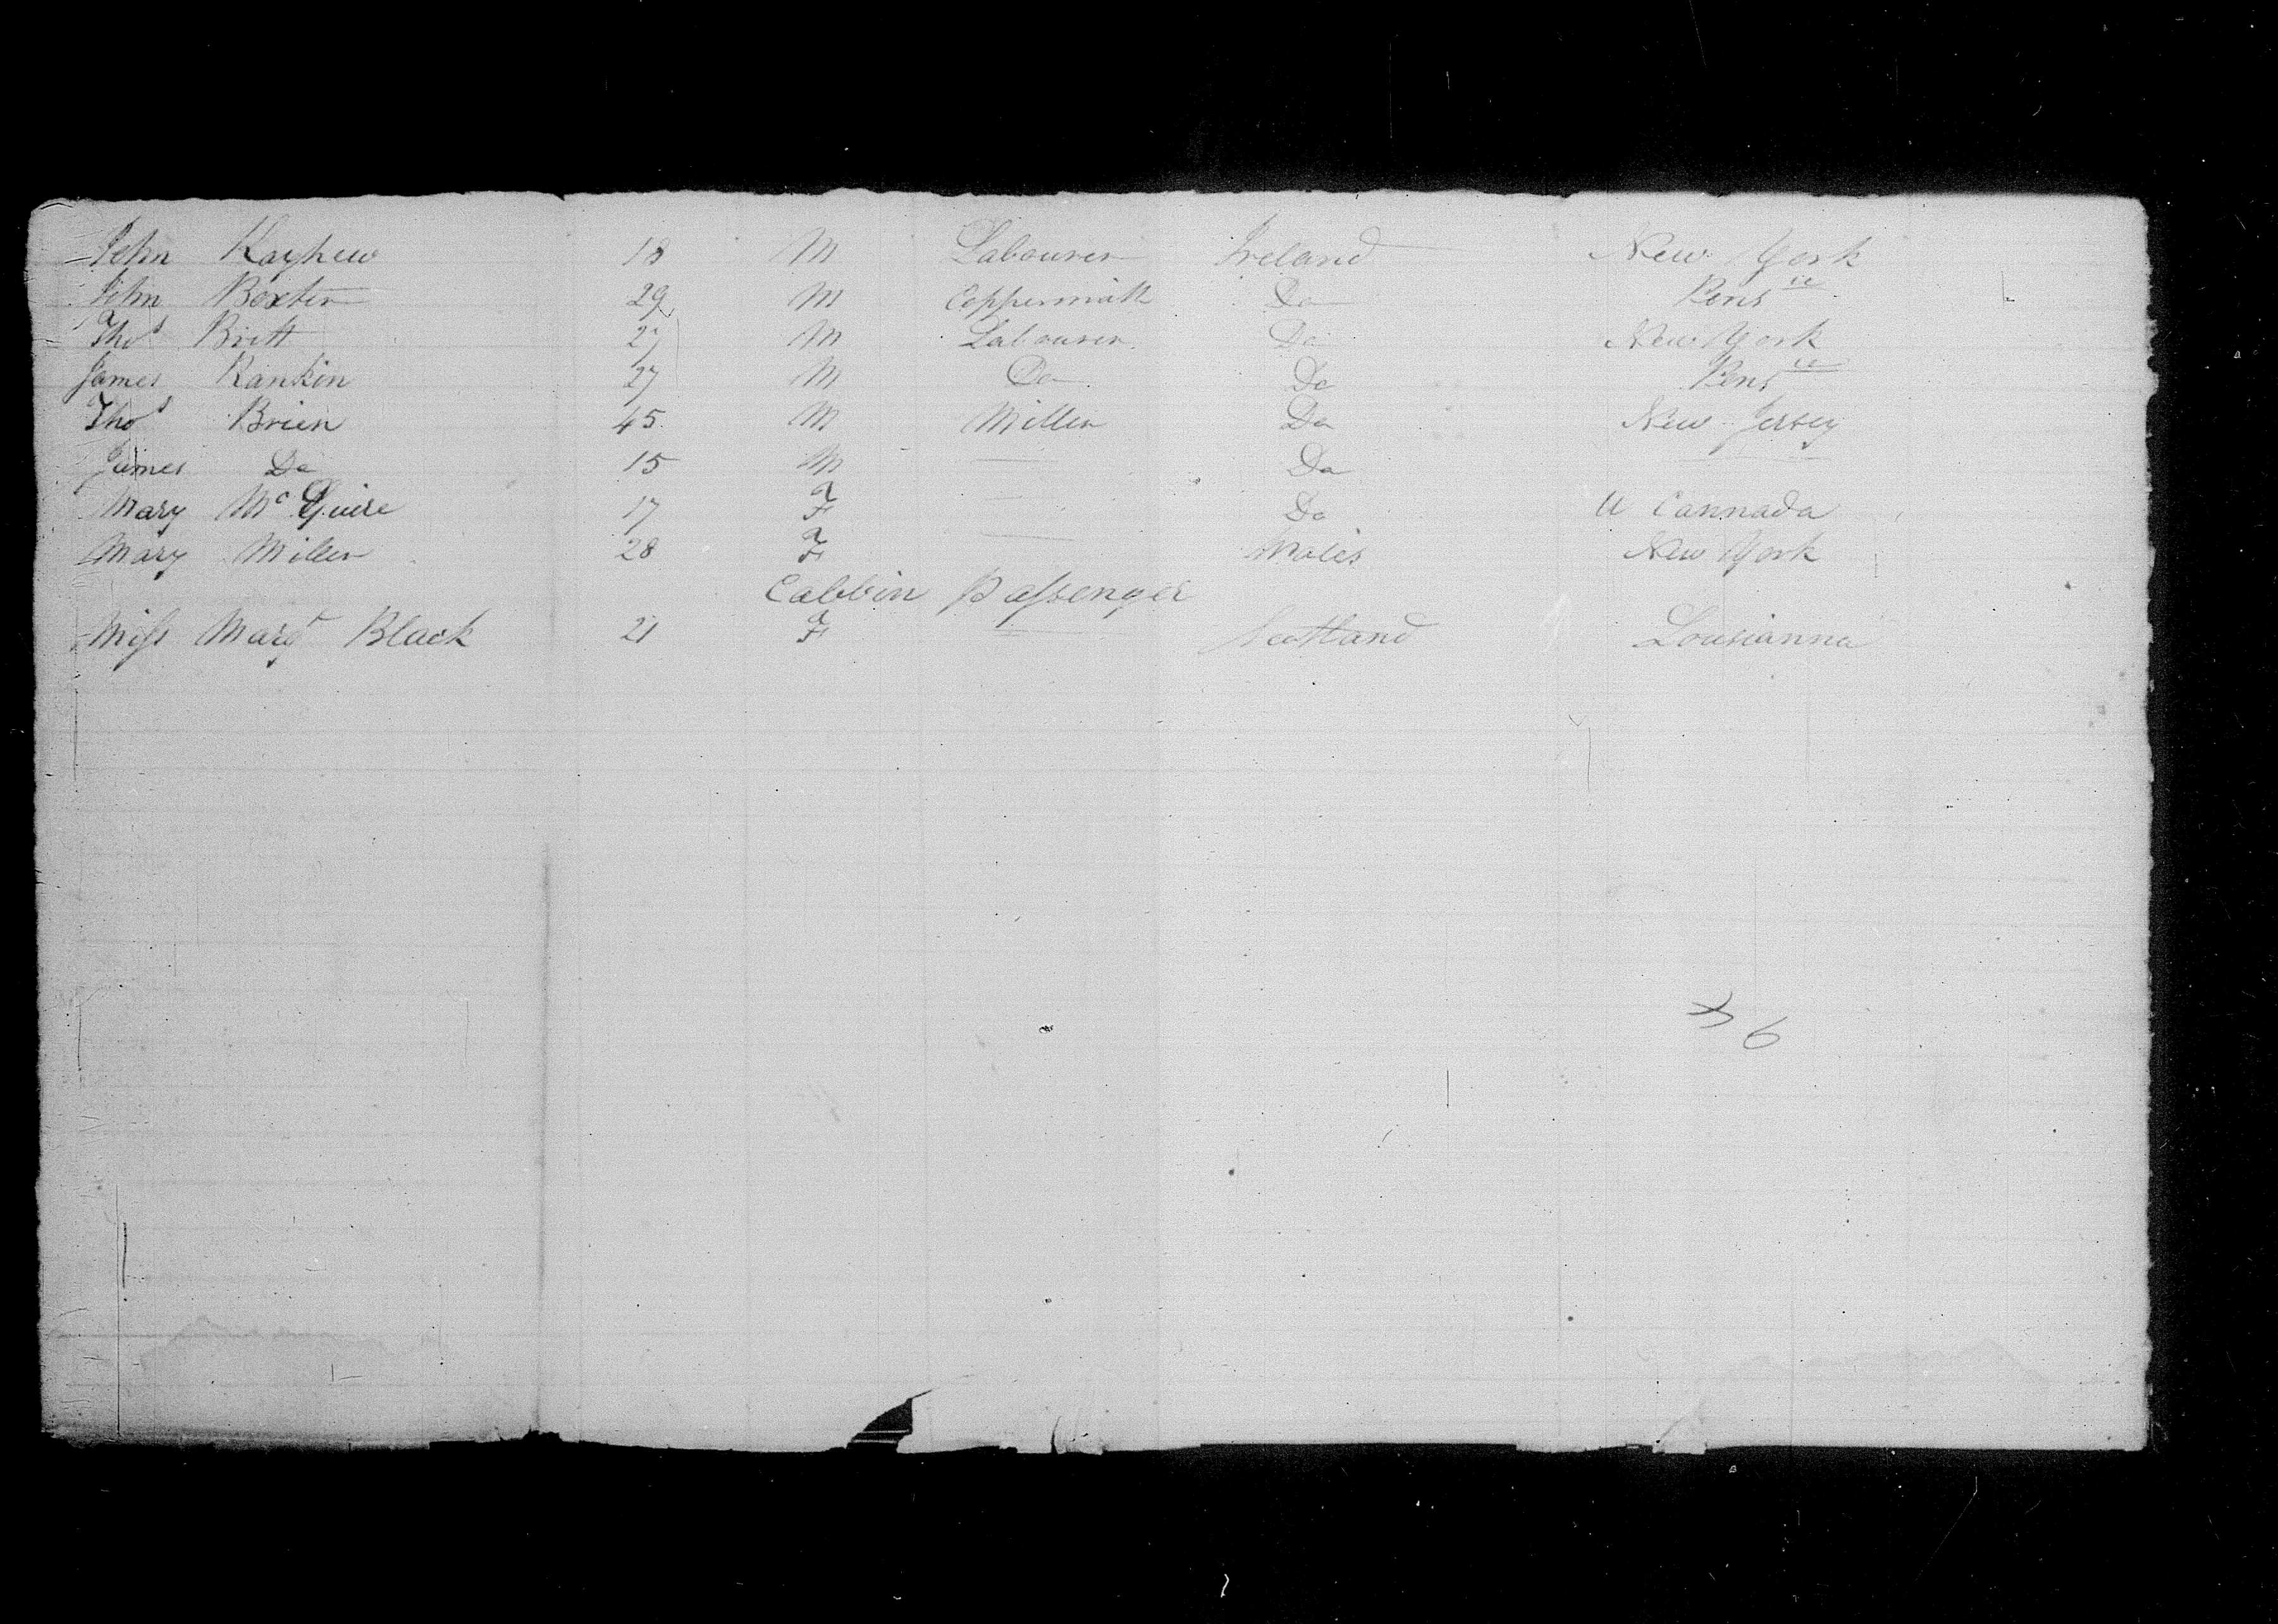 John Kayhew 18 M Labourer Ireland New York
John Boxter 29 M Coppersmith Do Pensᵃ
Thoˢ Britt 27 M Labourer Do New York
James Rankin 27 M Do Do Pensᵃ
Thoˢ Brien 45 M Miller Do New Jersey
James Do 15 M — Do —
Mary Mᶜ Guire 17 F — Do U Cannada
Mary Miller 28 F — Wales New York
Cabbin Passenger
Miss Margᵗ Black 21 F — Scotland Lousianna
36